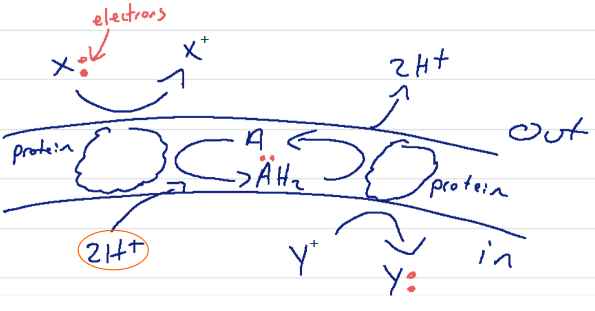 electrons
X:
X⁺
2H⁺
out
protein
A
AH₂
protein
2H⁺
Y⁺
Y:
in